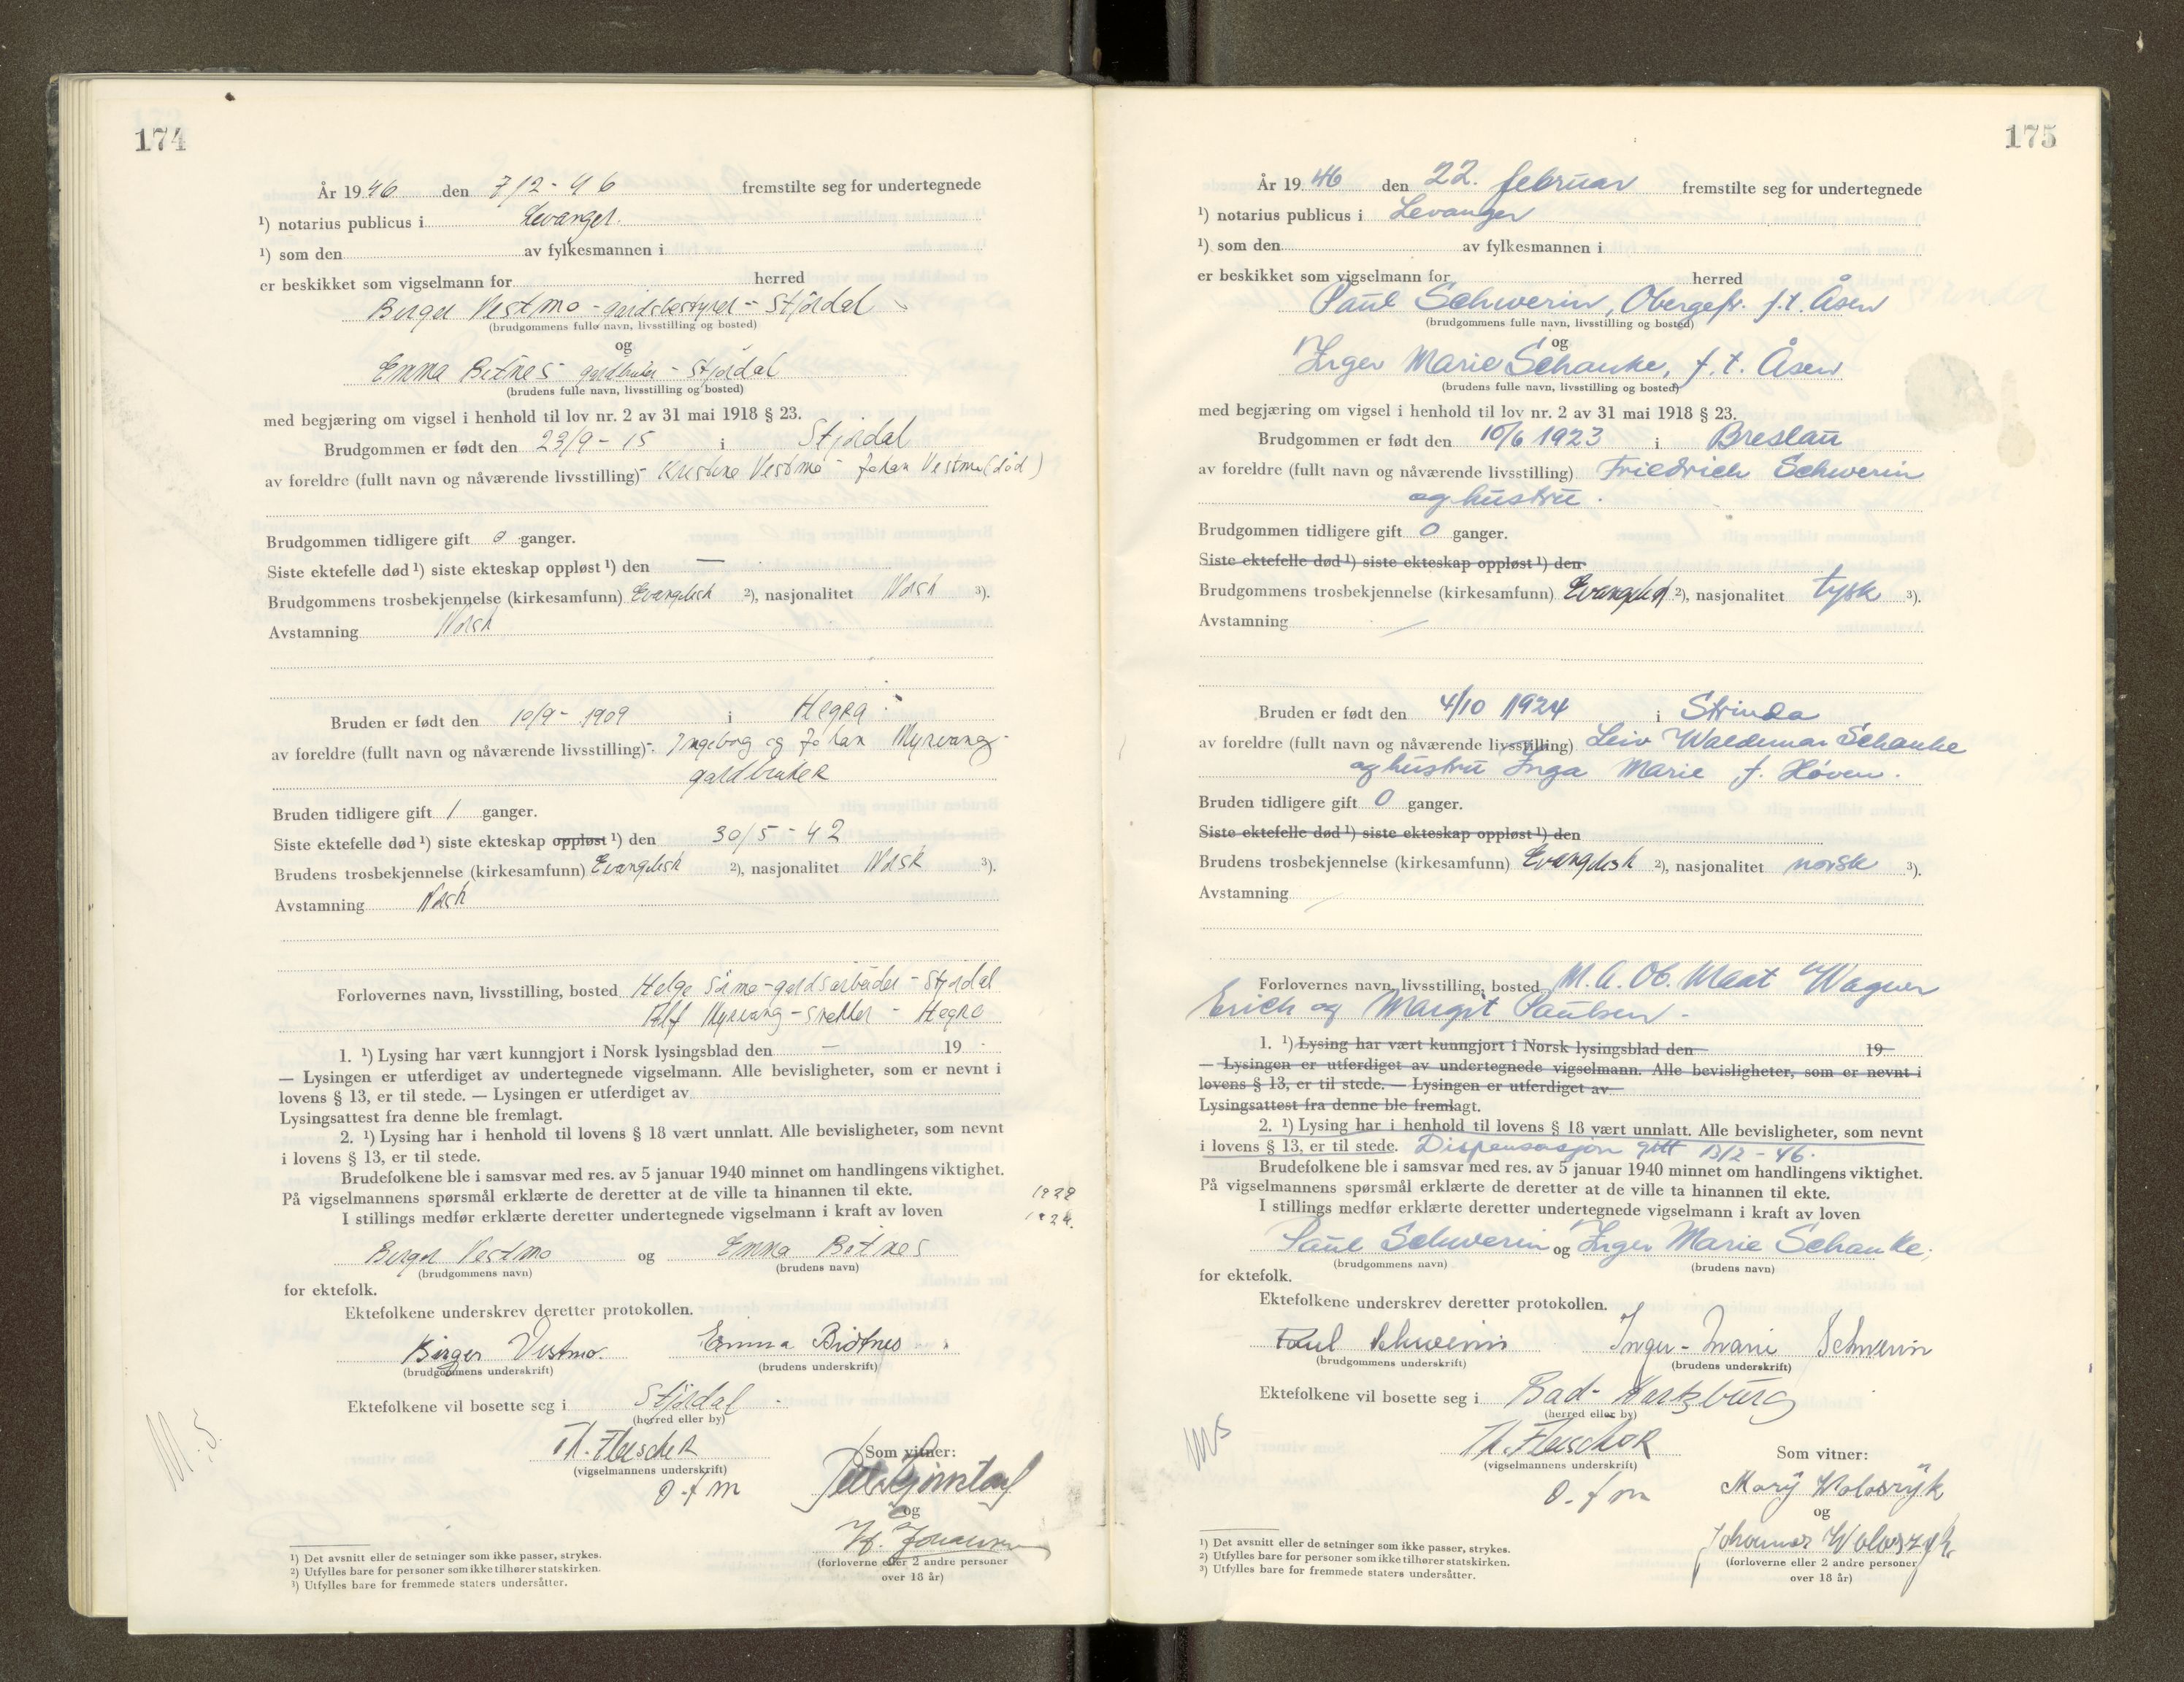 174
År 1946 den 7/2-46 fremstilte seg for undertegnede
¹) notarius publicus i Levanger.
¹) som den av fylkesmannen i
er beskikket som vigselmann for herred
Birger Vestmo - gardsbestyrer - Stjördal
(brudgommens fulle navn, livsstilling og bosted)
og
Emma Bitnes - gardbruker - Stjördal
(brudens fulle navn, livsstilling og bosted)
med begjæring om vigsel i henhold til lov nr. 2 av 31 mai 1918 § 23.
Brudgommen er født den 23/9 - 15 i Stjørdal
av foreldre (fullt navn og nåværende livsstilling) Kristine Vestmo - Johan Vestmo (död)
Brudgommen tidligere gift 0 ganger.
Siste ektefelle død ¹) siste ekteskap oppløst ¹) den —
Brudgommens trosbekjennelse (kirkesamfunn) Evangelisk ²), nasjonalitet Norsk ³).
Avstamning Norsk
Bruden er født den 10/9 - 1909 i Hegra
av foreldre (fullt navn og nåværende livsstilling) Ingeborg og Johan Myrvang
gardbruker
Bruden tidligere gift 1 ganger.
Siste ektefelle død ¹) siste ekteskap oppløst ¹) den 30/5 - 42
Brudens trosbekjennelse (kirkesamfunn) Evangelisk ²), nasjonalitet Norsk ³).
Avstamning Norsk
Forlovernes navn, livsstilling, bosted Helge - gardsarbeider - Stjördal
Alf Myrvang - snekker - Hegra
1. ¹) Lysing har vært kunngjort i Norsk lysingsblad den — 19
— Lysingen er utferdiget av undertegnede vigselmann. Alle bevisligheter, som er nevnt i
lovens § 13, er til stede. — Lysingen er utferdiget av
Lysingsattest fra denne ble fremlagt.
2. ¹) Lysing har i henhold til lovens § 18 vært unnlatt. Alle bevisligheter, som nevnt
i lovens § 13, er til stede.
Brudefolkene ble i samsvar med res. av 5 januar 1940 minnet om handlingens viktighet.
På vigselmannens spørsmål erklærte de deretter at de ville ta hinannen til ekte.
I stillings medfør erklærte deretter undertegnede vigselmann i kraft av loven
Birger Vestmo og Emma Bitnes
(brudgommens navn) (brudens navn)
for ektefolk.
Ektefolkene underskrev deretter protokollen.
Birger Vestmo. Emma Bitnes
(brudgommens underskrift) (brudens underskrift)
Ektefolkene vil bosette seg i Stjördal
(herred eller by)
M.S.
Th. Fleischer Som vitner:
(vigselmannens underskrift)
o.f.m
og
Johansen
(forloverne eller 2 andre personer
over 18 år)
¹) Det avsnitt eller de setninger som ikke passer, strykes.
²) Utfylles bare for personer som ikke tilhører statskirken.
³) Utfylles bare for fremmede staters undersåtter.
175
År 1946 den 22. februar fremstilte seg for undertegnede
¹) notarius publicus i Levanger
¹) som den av fylkesmannen i
er beskikket som vigselmann for herred
Paul Schwerin, Obergefr. f.t. Åsen
(brudgommens fulle navn, livsstilling og bosted)
og
Inger Marie Schanke, f.t. Åsen
(brudens fulle navn, livsstilling og bosted)
med begjæring om vigsel i henhold til lov nr. 2 av 31 mai 1918 § 23.
Brudgommen er født den 10/6 1923 i Breslau
av foreldre (fullt navn og nåværende livsstilling) Friedrich Schwerin
og hustru.
Brudgommen tidligere gift 0 ganger.
Siste ektefelle død ¹) siste ekteskap oppløst ¹) den
Brudgommens trosbekjennelse (kirkesamfunn) Evangelisk ²), nasjonalitet tysk ³).
Avstamning
Bruden er født den 4/10 1924 i Strinda
av foreldre (fullt navn og nåværende livsstilling) Leiv Waldemar Schanke
og hustru Inga Marie f. Høven.
Bruden tidligere gift 0 ganger.
Siste ektefelle død ¹) siste ekteskap oppløst ¹) den
Brudens trosbekjennelse (kirkesamfunn) Evangelisk ²), nasjonalitet norsk ³).
Avstamning
Forlovernes navn, livsstilling, bosted M.A. Ob. Maat Wagner
Erich og Margit Paulsen.
1. ¹) Lysing har vært kunngjort i Norsk lysingsblad den 19
— Lysingen er utferdiget av undertegnede vigselmann. Alle bevisligheter, som er nevnt i
lovens § 13, er til stede. — Lysingen er utferdiget av
Lysingsattest fra denne ble fremlagt.
2. ¹) Lysing har i henhold til lovens § 18 vært unnlatt. Alle bevisligheter, som nevnt
i lovens § 13, er til stede. Dispensasjon gitt 13/2 - 46.
Brudefolkene ble i samsvar med res. av 5 januar 1940 minnet om handlingens viktighet.
På vigselmannens spørsmål erklærte de deretter at de ville ta hinannen til ekte.
I stillings medfør erklærte deretter undertegnede vigselmann i kraft av loven
Paul Schwerin og Inger Marie Schanke.
(brudgommens navn) (brudens navn)
for ektefolk.
Ektefolkene underskrev deretter protokollen.
Paul Schwerin Inger-Marie Schwerin
(brudgommens underskrift) (brudens underskrift)
Ektefolkene vil bosette seg i Bad-Harzburg
(herred eller by)
MS
Th. Fleischer Som vitner:
(vigselmannens underskrift)
o.f.m
Mary
og
Johannes
(forloverne eller 2 andre personer
over 18 år)
¹) Det avsnitt eller de setninger som ikke passer, strykes.
²) Utfylles bare for personer som ikke tilhører statskirken.
³) Utfylles bare for fremmede staters undersåtter.